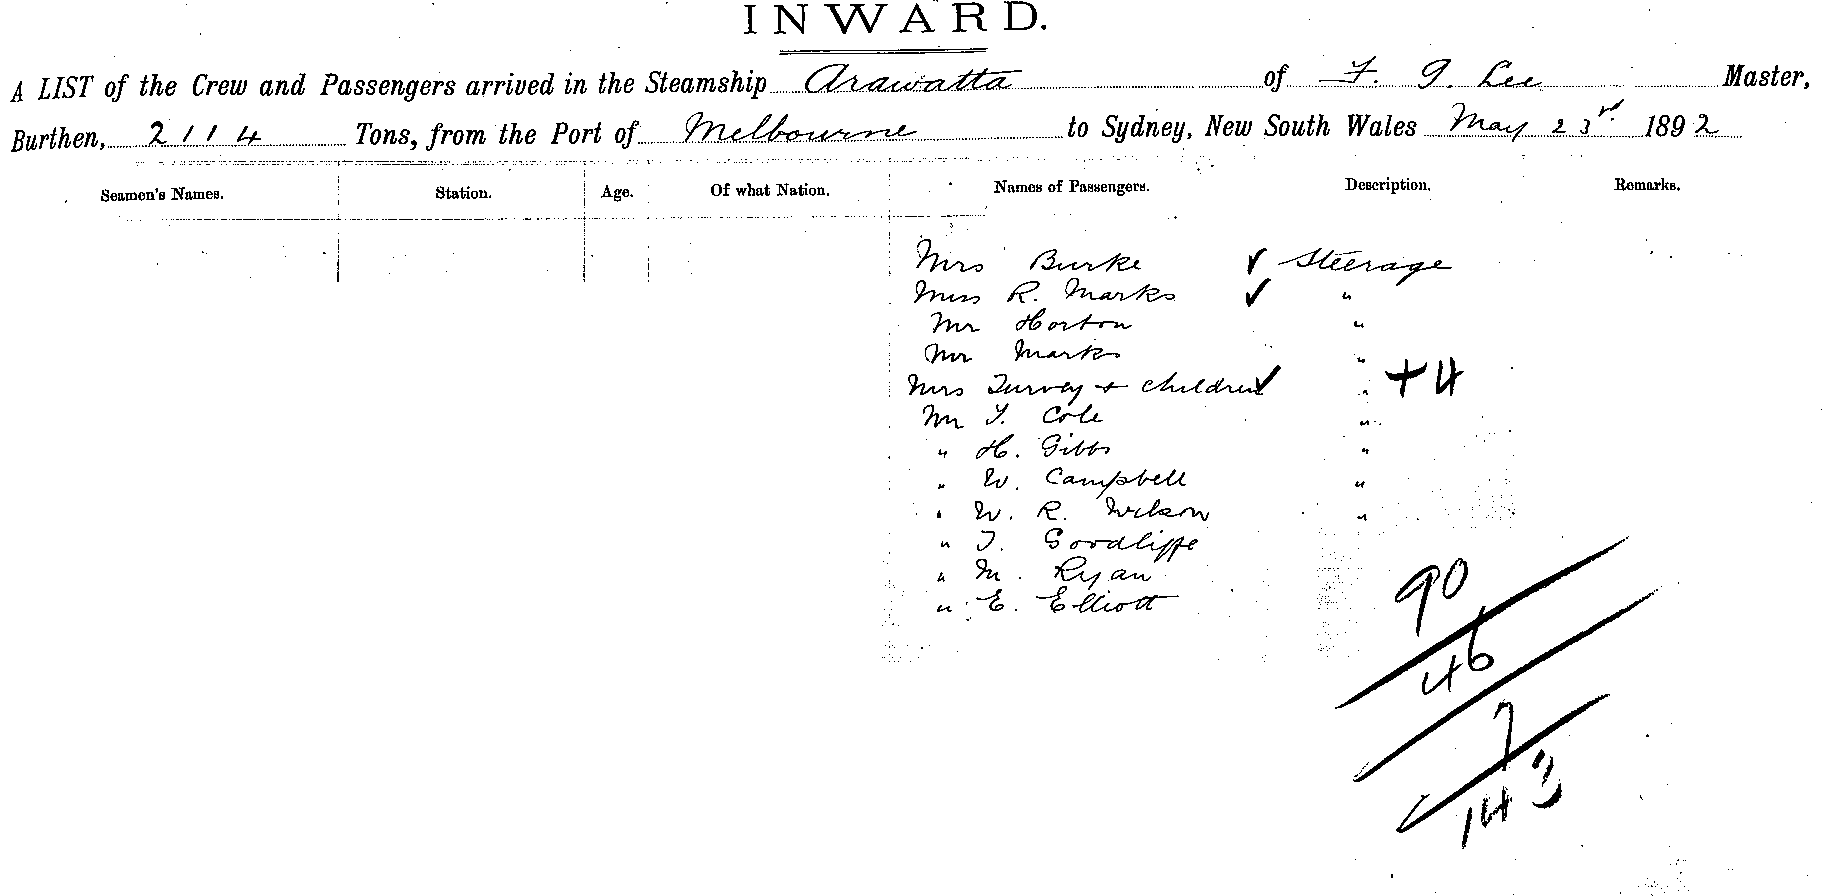 INWARD.
A LIST of the Crew and Passengers arrived in the Steamship Arawatta of F. G. Lee Master,
Burthen, 2114 Tons, from the Port of Melbourne to Sydney, New South Wales May 23rd. 1892
Seamen's Names. Station. Age. Of what Nation. Names of Passengers. Description. Remarks.
Mrs Burke ✓ Steerage
Miss R. Marks ✓ "
Mr Horton "
Mr Marks "
Mrs Turvey + children ✓ " +4
Mr T. Cole "
" H. Gibbs "
" W. Campbell "
" W. R. Wilson "
" T. Goodliffe
" M. Ryan
" E. Elliott
90
46
7
143